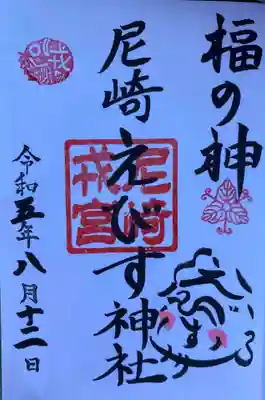 福の神
尼崎えびす神社
尼崎
戎宮
令和五年八月十二日